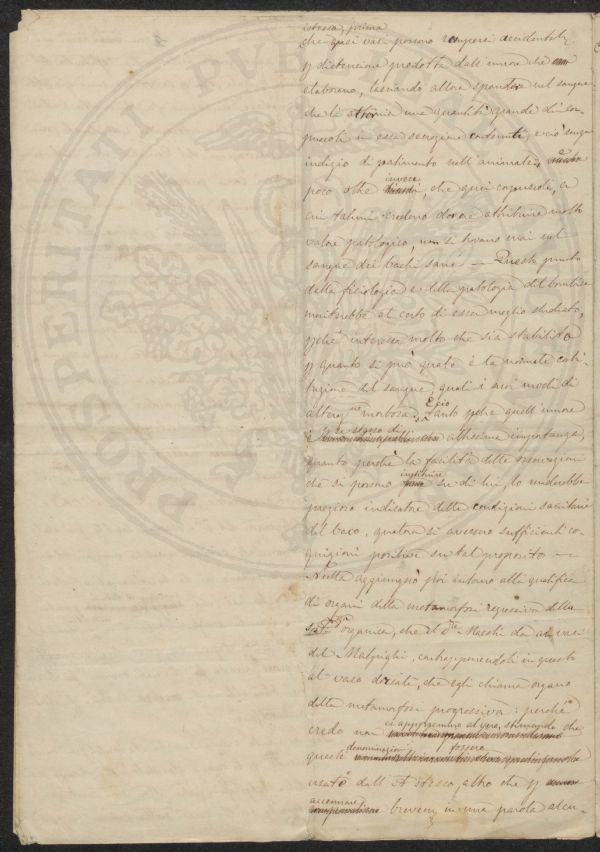 istessa, prima
che quei vasi possono rompersi accidentalm
p distensione prodotta dall'umore che
elaborano, lasciando allora spandere nel sangue
che li attornia una quantità grande di cor-
puscoli in essa secrezione contenuti, e ciò senza
indizio di patimento nell'animale, e
poco oltre invece, che quei corpuscoli, a
cui taluni credono dovere attribuire molto
valore patologico, non si trovano mai nel
sangue dei bachi sani — Questo punto
della fisiologia e della patologia del bombice
meriterebbe al certo di esser meglio studiato,
pchè interessa molto che sia stabilito
p quanto si può quale è la normale costi-
tuzione del sangue, quali i suoi modi di
alterazne morbosa. E ciò tanto pchè quell'umore
è p se stesso di altissima importanza,
quanto perchè la facilità delle osservazioni
che si possono instituire su di lui, lo renderebbe
prezioso indicatore delle condizioni sanitarie
del baco, qualora si avessero sufficienti co-
gnizioni positive su tal proposito —
Nulla aggiungerò poi intorno alla qualifica
di organi della metamorfosi regressiva della
organica, che il Dre Maestri dà ai vasi
del Malpighi, contrapponendoli in questo
al vaso dorsale, che egli chiama organo
della metamorfosi progressiva: perchè
credo non ci apporremmo al vero, stimando che
queste denominazioni fossero
usate dall'A stesso, altro che p
accennare brevem, in una parola alcu-